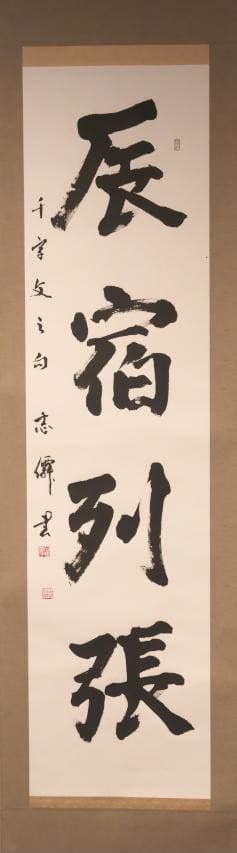 辰宿列張
千字文之句 志僊書